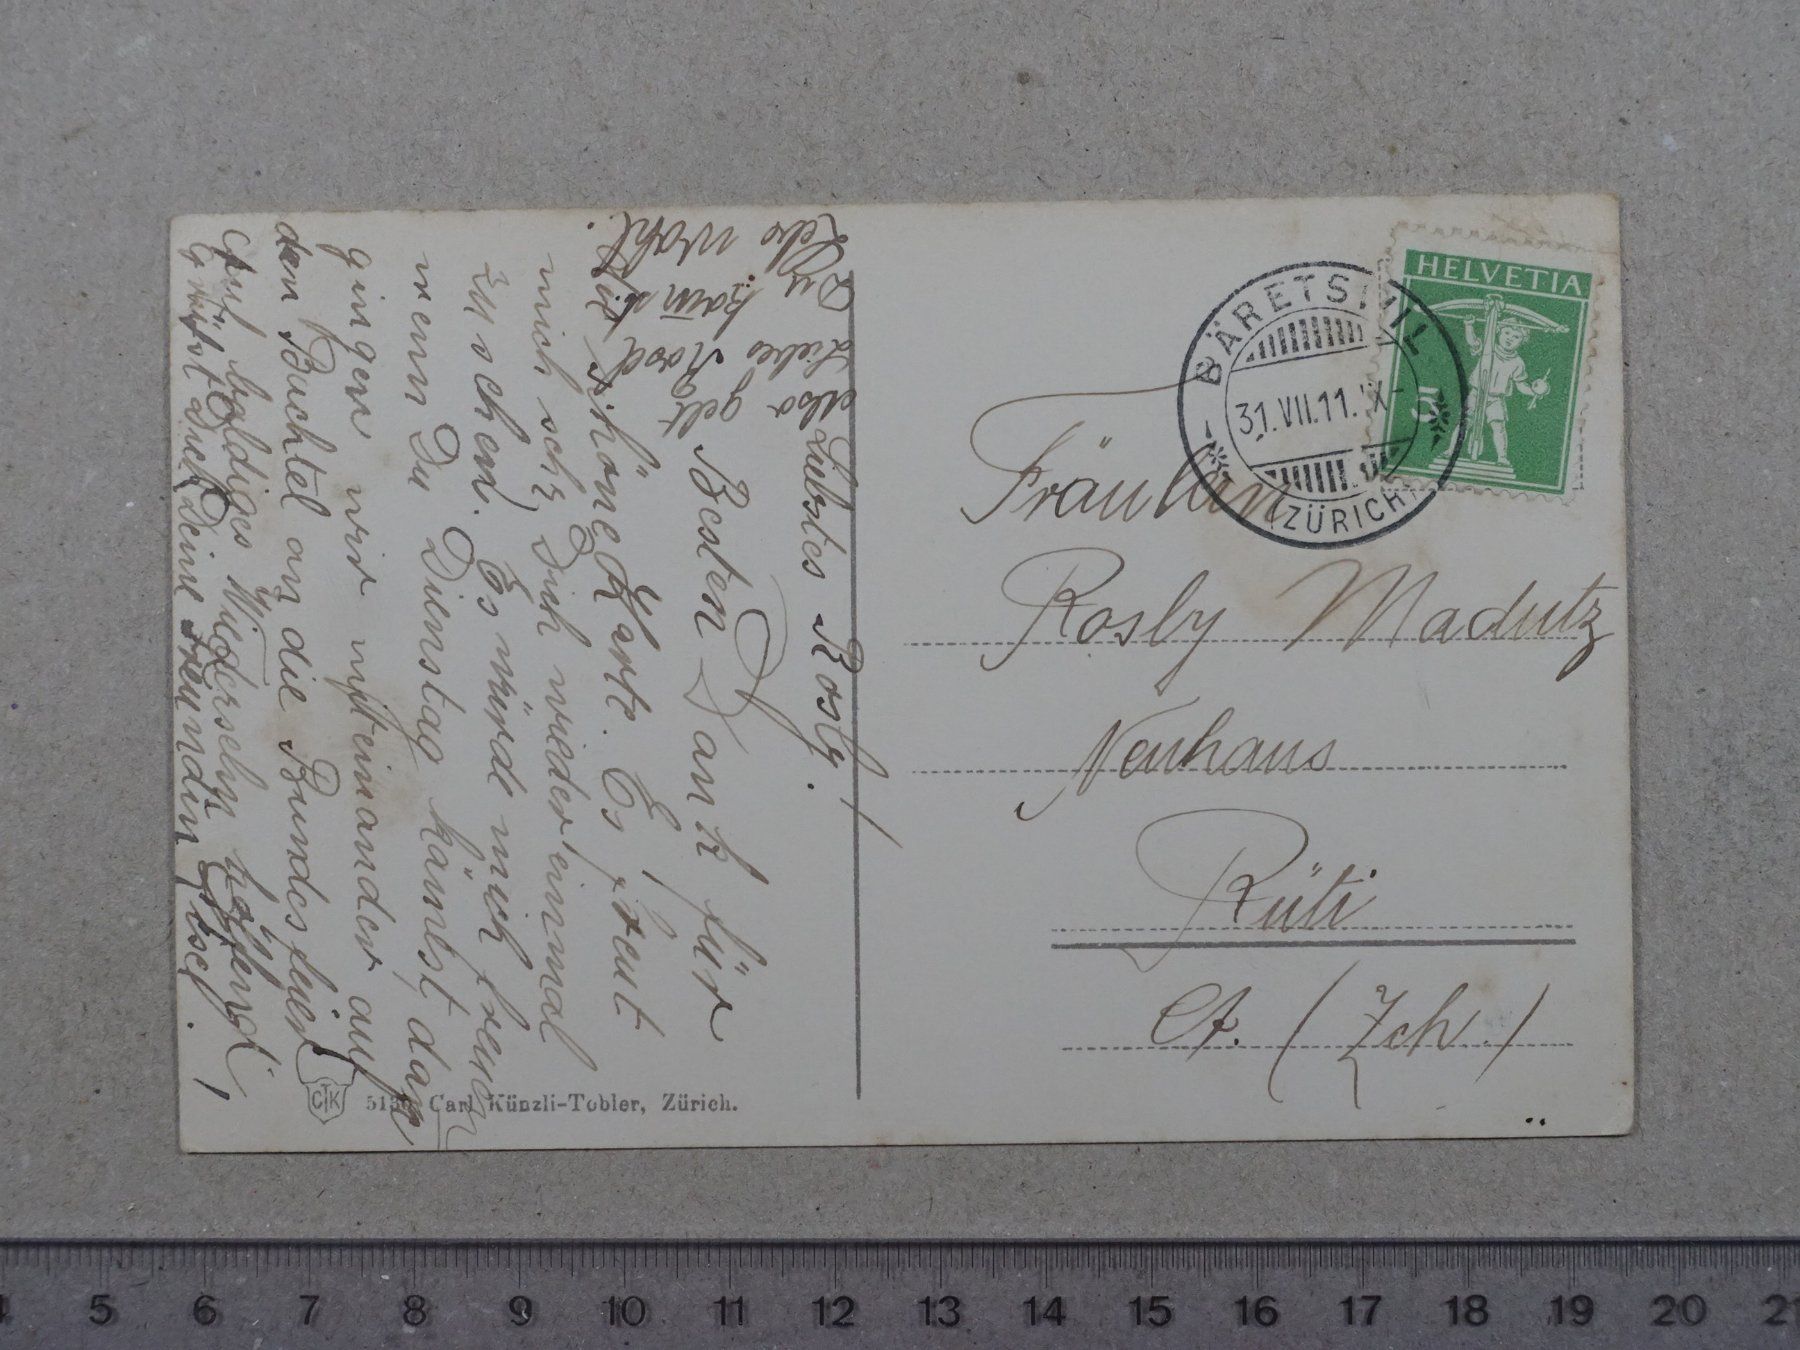 Liebstes Rosly!
Besten Dank für
die schöne Karte. Es freut
mich sehr Dich wieder einmal
zu sehen. Es würde mich freuen
wenn Du Dienstag kämest, dann
gingen wir miteinander auf
den Bachtel an die Bundesfeier
Auf baldiges Wiedersehn hoffend,
grüsst Dich Deine Freundin
Also gelt
liebes
Du kamst
Lebe wohl.
HELVETIA
5
BÄRETSWIL
31.VII.11.IX-
(ZÜRICH)
Fräulein
Rosly Madutz
Neuhaus
Rüti
Ct. (Zch.)
CTK
Carl Künzli-Tobler, Zürich.
4 5 6 7 8 9 10 11 12 13 14 15 16 17 18 19 20 21